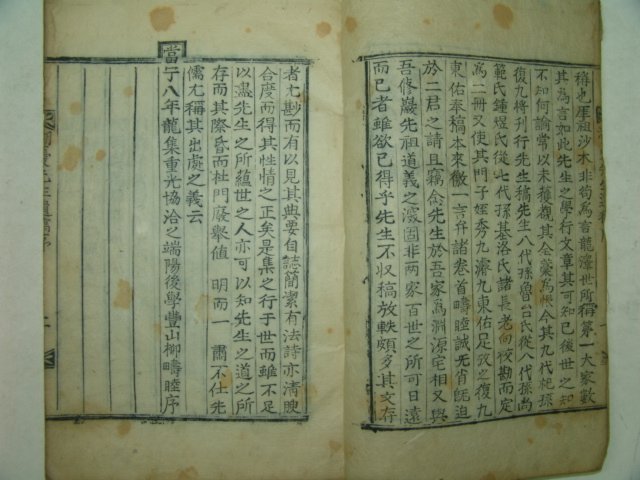 稱也厓祖沙木非苟爲言龍潭世所稱第一大家數
其爲言如此先生之學行文章其可知已後世之知
不知何論常以未獲覩其全藁爲恨今其九代祀孫
復九將刊行先生稿先生八代孫魯台氏從八代孫尙
範氏鍾煜氏從七代孫基洛氏諸長老向校勘而定
爲二冊又使其門子姪秀九濬九東佑足攷之復九
東佑奉稿本來徵一言弁諸卷首疇睦誠先省旣迫
於二君之請且竊念先生於吾家爲淵源宅相又與
吾修巖先祖道義之深固非兩家百世之所可日遠
而已者雖欲已得乎先生不収稿放軼頗多其文存
者尤尠而有以見其典要自誌簡潔有法詩亦清腴
合度而得其性情之正矣是集之行于世而雖不足
以盡先生之所蘊世之人亦可以知先生之道之所
存而其際昏而杜門廢擧値 明而一 肅不仕先
儒尤稱其出處之義云
當宁八年龍集重光協洽之端陽後學豐山柳疇睦序